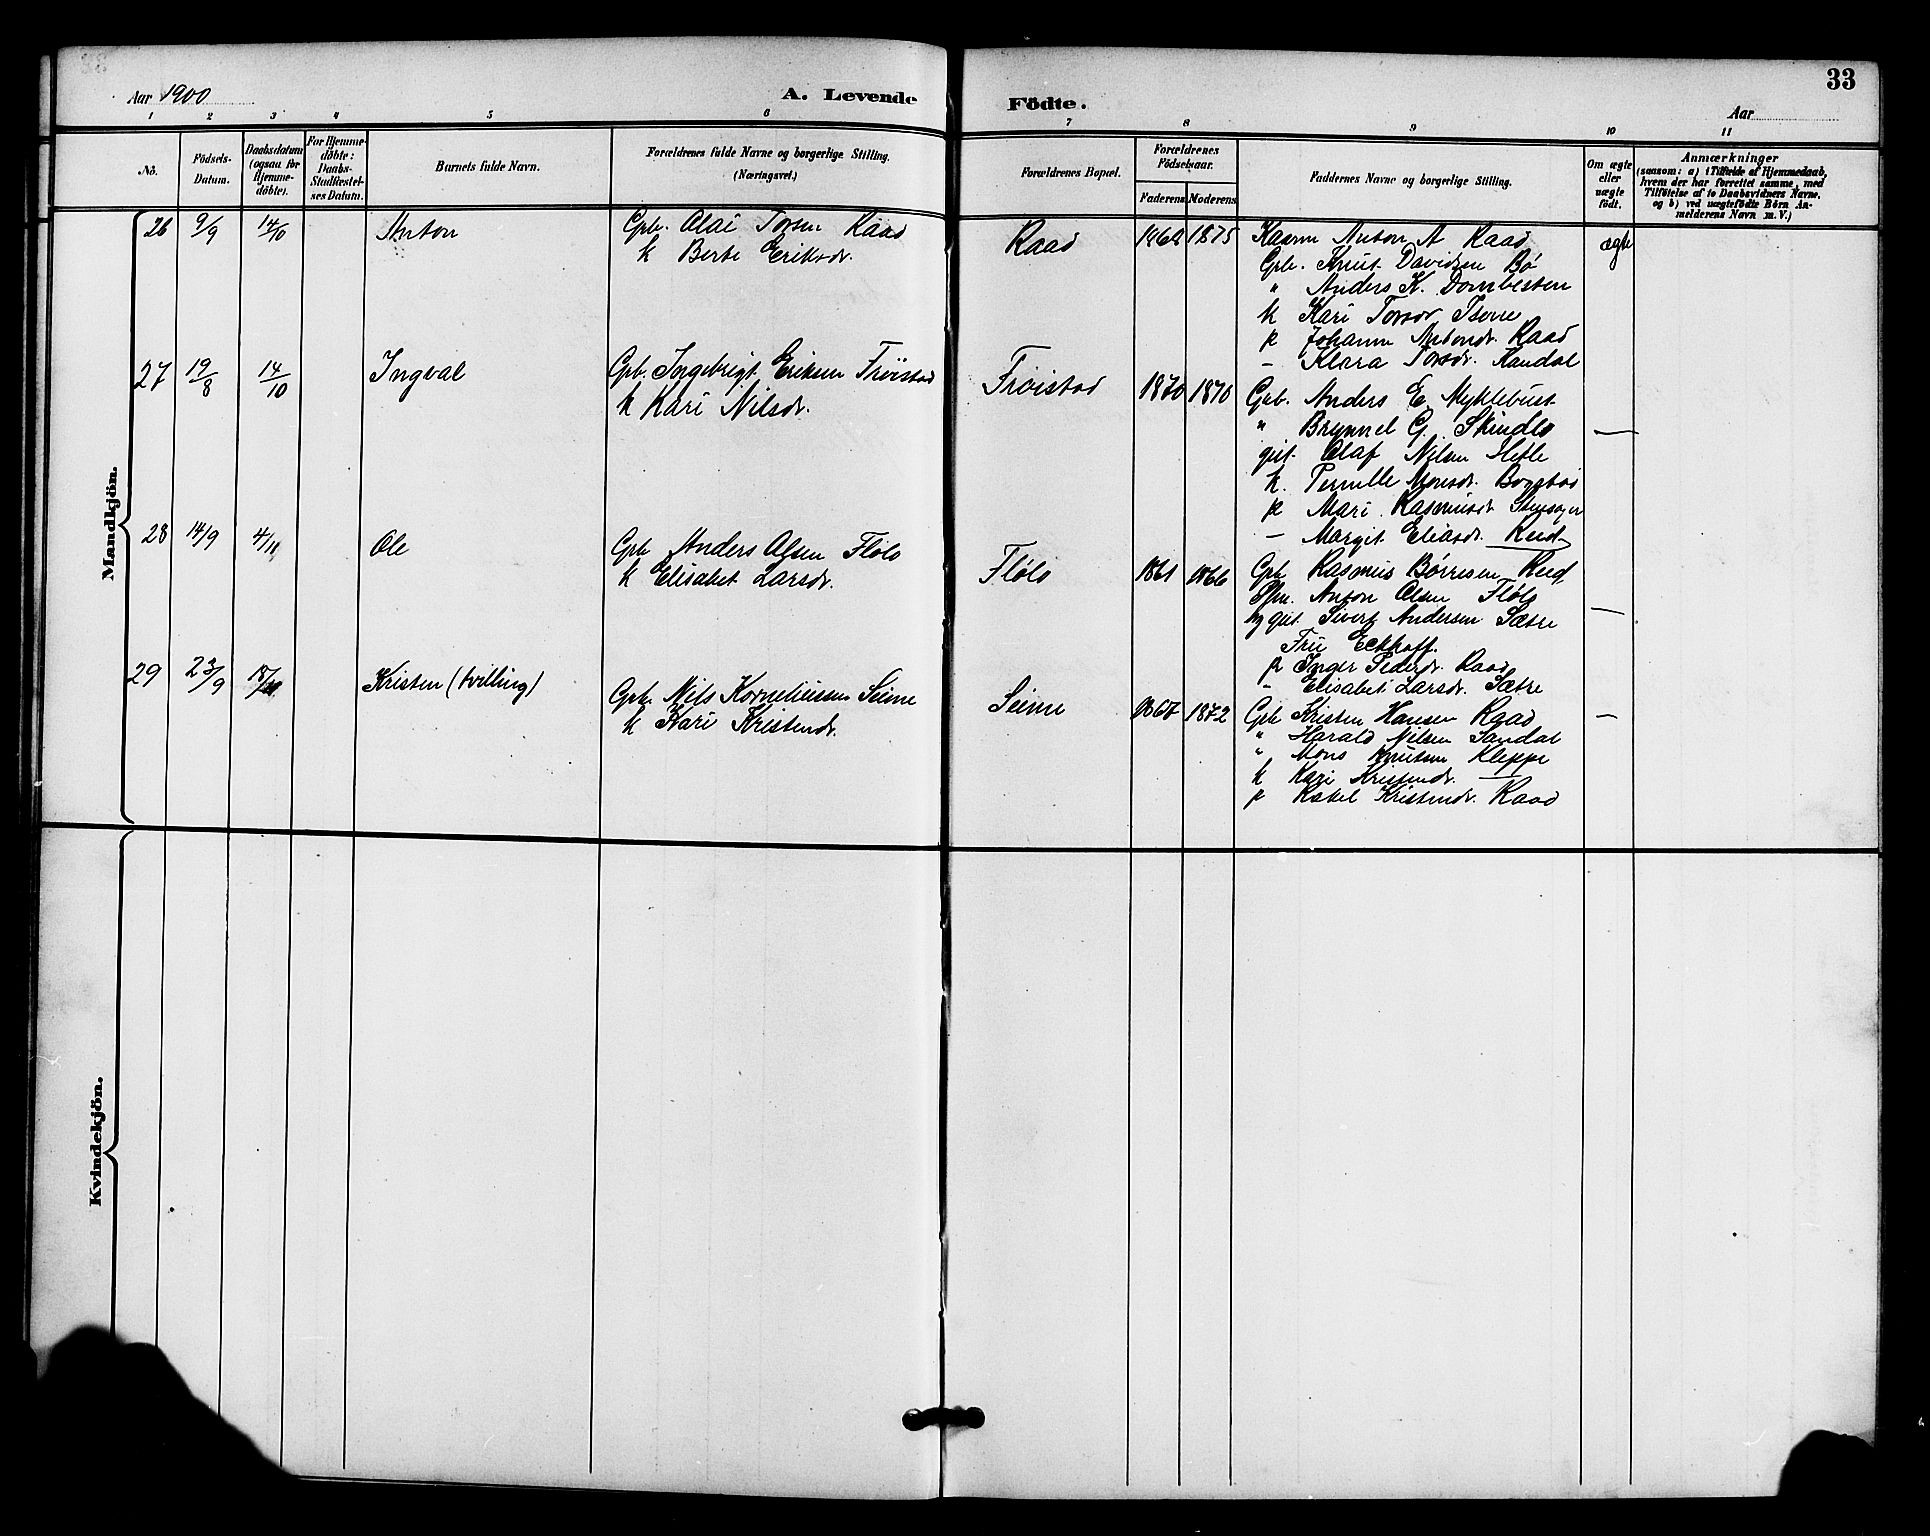 33
Aar 1900
A. Levende Födte.
Aar
1 2 3 4 5 6 7 8 9 10 11
No.
Födsels-
Datum.
Daabsdatum
(ogsaa for
Hjemme-
döbte).
For Hjemme-
döbte:
Daabs-
Stadfæstel-
ses Datum.
Barnets fulde Navn.
Forældrenes fulde Navne og borgerlige Stilling.
(Næringsvei.)
Forældrenes Bopæl.
Forældrenes
Födselsaar.
Faderens Moderens
Faddernes Navne og borgerlige Stilling.
Om ægte
eller
uægte
født.
Anmærkninger
(saasom: a) i Tilfælde af Hjemmedaab,
hvem der har forrettet samme, med
Tilföielse af to Daabsvidners Navne,
og b) ved uægtefödte Börn An-
melderens Navn m. V.)
Mandkjön.
26 9/9 14/10 Anton
Gpb. Olai Torsen Raad
k Berte Eriksdr.
Raad 1875
Anton A Raad
Gpb. Knut Davidsen Bø
" Anders K. Dombesten
k Kari
p Johanne Antondr. Raad
- Klara Torsdr. Sandal
ægte
27 19/8 14/10 Ingval
Gpb. Ingebrigt Eriksen Frøistad
k Kari Nilsdr.
Frøistad 1870 1870
Gpb. Anders E Myklebust
" Brynnel G.
gut. Olaf Nilsen Hefle
k. Pernille Monsdr.
p Mari Rasmusdr.
- Margit Eliasdr. Rud
—
28 14/9 4/11 Ole
Gpb Anders Olsen Flølo
k Elisabet Larsdr.
Flølo 1861 1866
Gpb Rasmus Børresen Rud
Anton Olsen Flølo
gut. Sivert Andersen Sætre
Fru Eckhoff.
p Inger Pedersdr. Raad
- Elisabet Larsdr. Sætre
—
29 23/9 18/11 Kristen (tvilling)
Gpb. Nils Korneliussen Seime
k Kari Kristendr.
Seime 1867 1872
Gpb Kristen Hansen Raad
" Harald Nilsen Sandal
" Mons Knutsen Kleppe
k Kari Kristendr. —
p Rakel Kristendr. Raad
—
Kvindekjön.